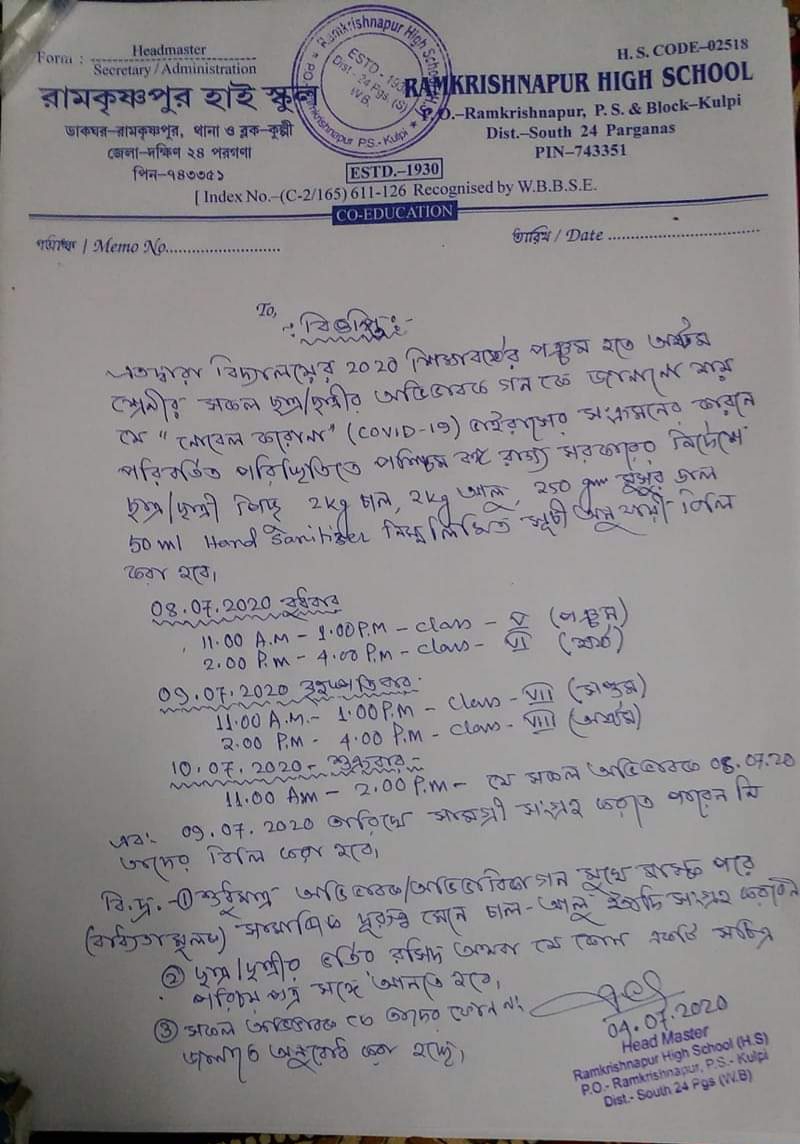 Form : Headmaster
Secretary / Administration
রামকৃষ্ণপুর হাই স্কুল
ডাকঘর–রামকৃষ্ণপুর, থানা ও ব্লক–কুল্পী
জেলা–দক্ষিণ ২৪ পরগণা
পিন–৭৪৩৩৫১
Ramkrishnapur High School
ESTD.-1930
Dist-24 Pgs (S)
W.B.
P.S.- Kulpi
H. S. CODE–02518
RAMKRISHNAPUR HIGH SCHOOL
P.O.–Ramkrishnapur, P. S. & Block–Kulpi
Dist.–South 24 Parganas
PIN–743351
ESTD.–1930
[ Index No.–(C-2/165) 611-126 Recognised by W.B.B.S.E.
CO-EDUCATION
/ Memo No..............................
তারিখ / Date ..............................
To,
-: বিজ্ঞপ্তি :-
এতদ্বারা বিদ্যালয়ের 2020 শিক্ষাবর্ষের পঞ্চম হতে অষ্টম
শ্রেনীর সকল ছাত্র/ছাত্রীর অভিভাবক গন কে জানানো যায়
যে "নোবেল করোনা" (COVID-19) ভাইরাসের সংক্রমনের কারনে
পরিবর্তিত পরিস্থিতিতে পশ্চিম বঙ্গ রাজ্য সরকারের নির্দেশে
ছাত্র/ছাত্রী পিছু 2kg চাল, 2kg আলু, 250 gm মুসুর ডাল
50 ml Hand Sanitizer নিম্নলিখিত সূচী অনুযায়ী বিলি
করা হবে।
08.07.2020 বুধবার
11.00 A.M - 1.00 P.M - class - V (পঞ্চম)
2.00 P.m - 4.00 P.m - class - VI (ষষ্ঠ)
09.07.2020 বৃহস্পতিবার
11.00 A.M. - 1.00 P.M - class - VII (সপ্তম)
2.00 P.M - 4.00 P.M - class - VIII (অষ্টম)
10.07.2020 - শুক্রবার -
11.00 Am - 2.00 P.m - যে সকল অভিভাবক 08.07.20
এবং 09.07.2020 তারিখে সামগ্রী সংগ্রহ করতে পারেন নি
তাদের বিলি করা হবে।
বি.দ্র. - ① শুধুমাত্র অভিভাবক/অভিভাবিকা গন মুখে মাস্ক পরে
(বাধ্যতামূলক) সামাজিক দূরত্ব মেনে চাল-আলু ইত্যাদি সংগ্রহ করবেন
② ছাত্র/ছাত্রীর ভর্তির রসিদ অথবা যে কোন একটি সচিত্র
পরিচয় পত্র সঙ্গে আনতে হবে।
③ সকল অভিভাবক কে তাদের ফোন নং
জানাতে অনুরোধ করা হচ্ছে।
04.07.2020
Head Master
Ramkrishnapur High School (H.S)
P.O.- Ramkrishnapur, P.S.- Kulpi
Dist.- South 24 Pgs (W.B)